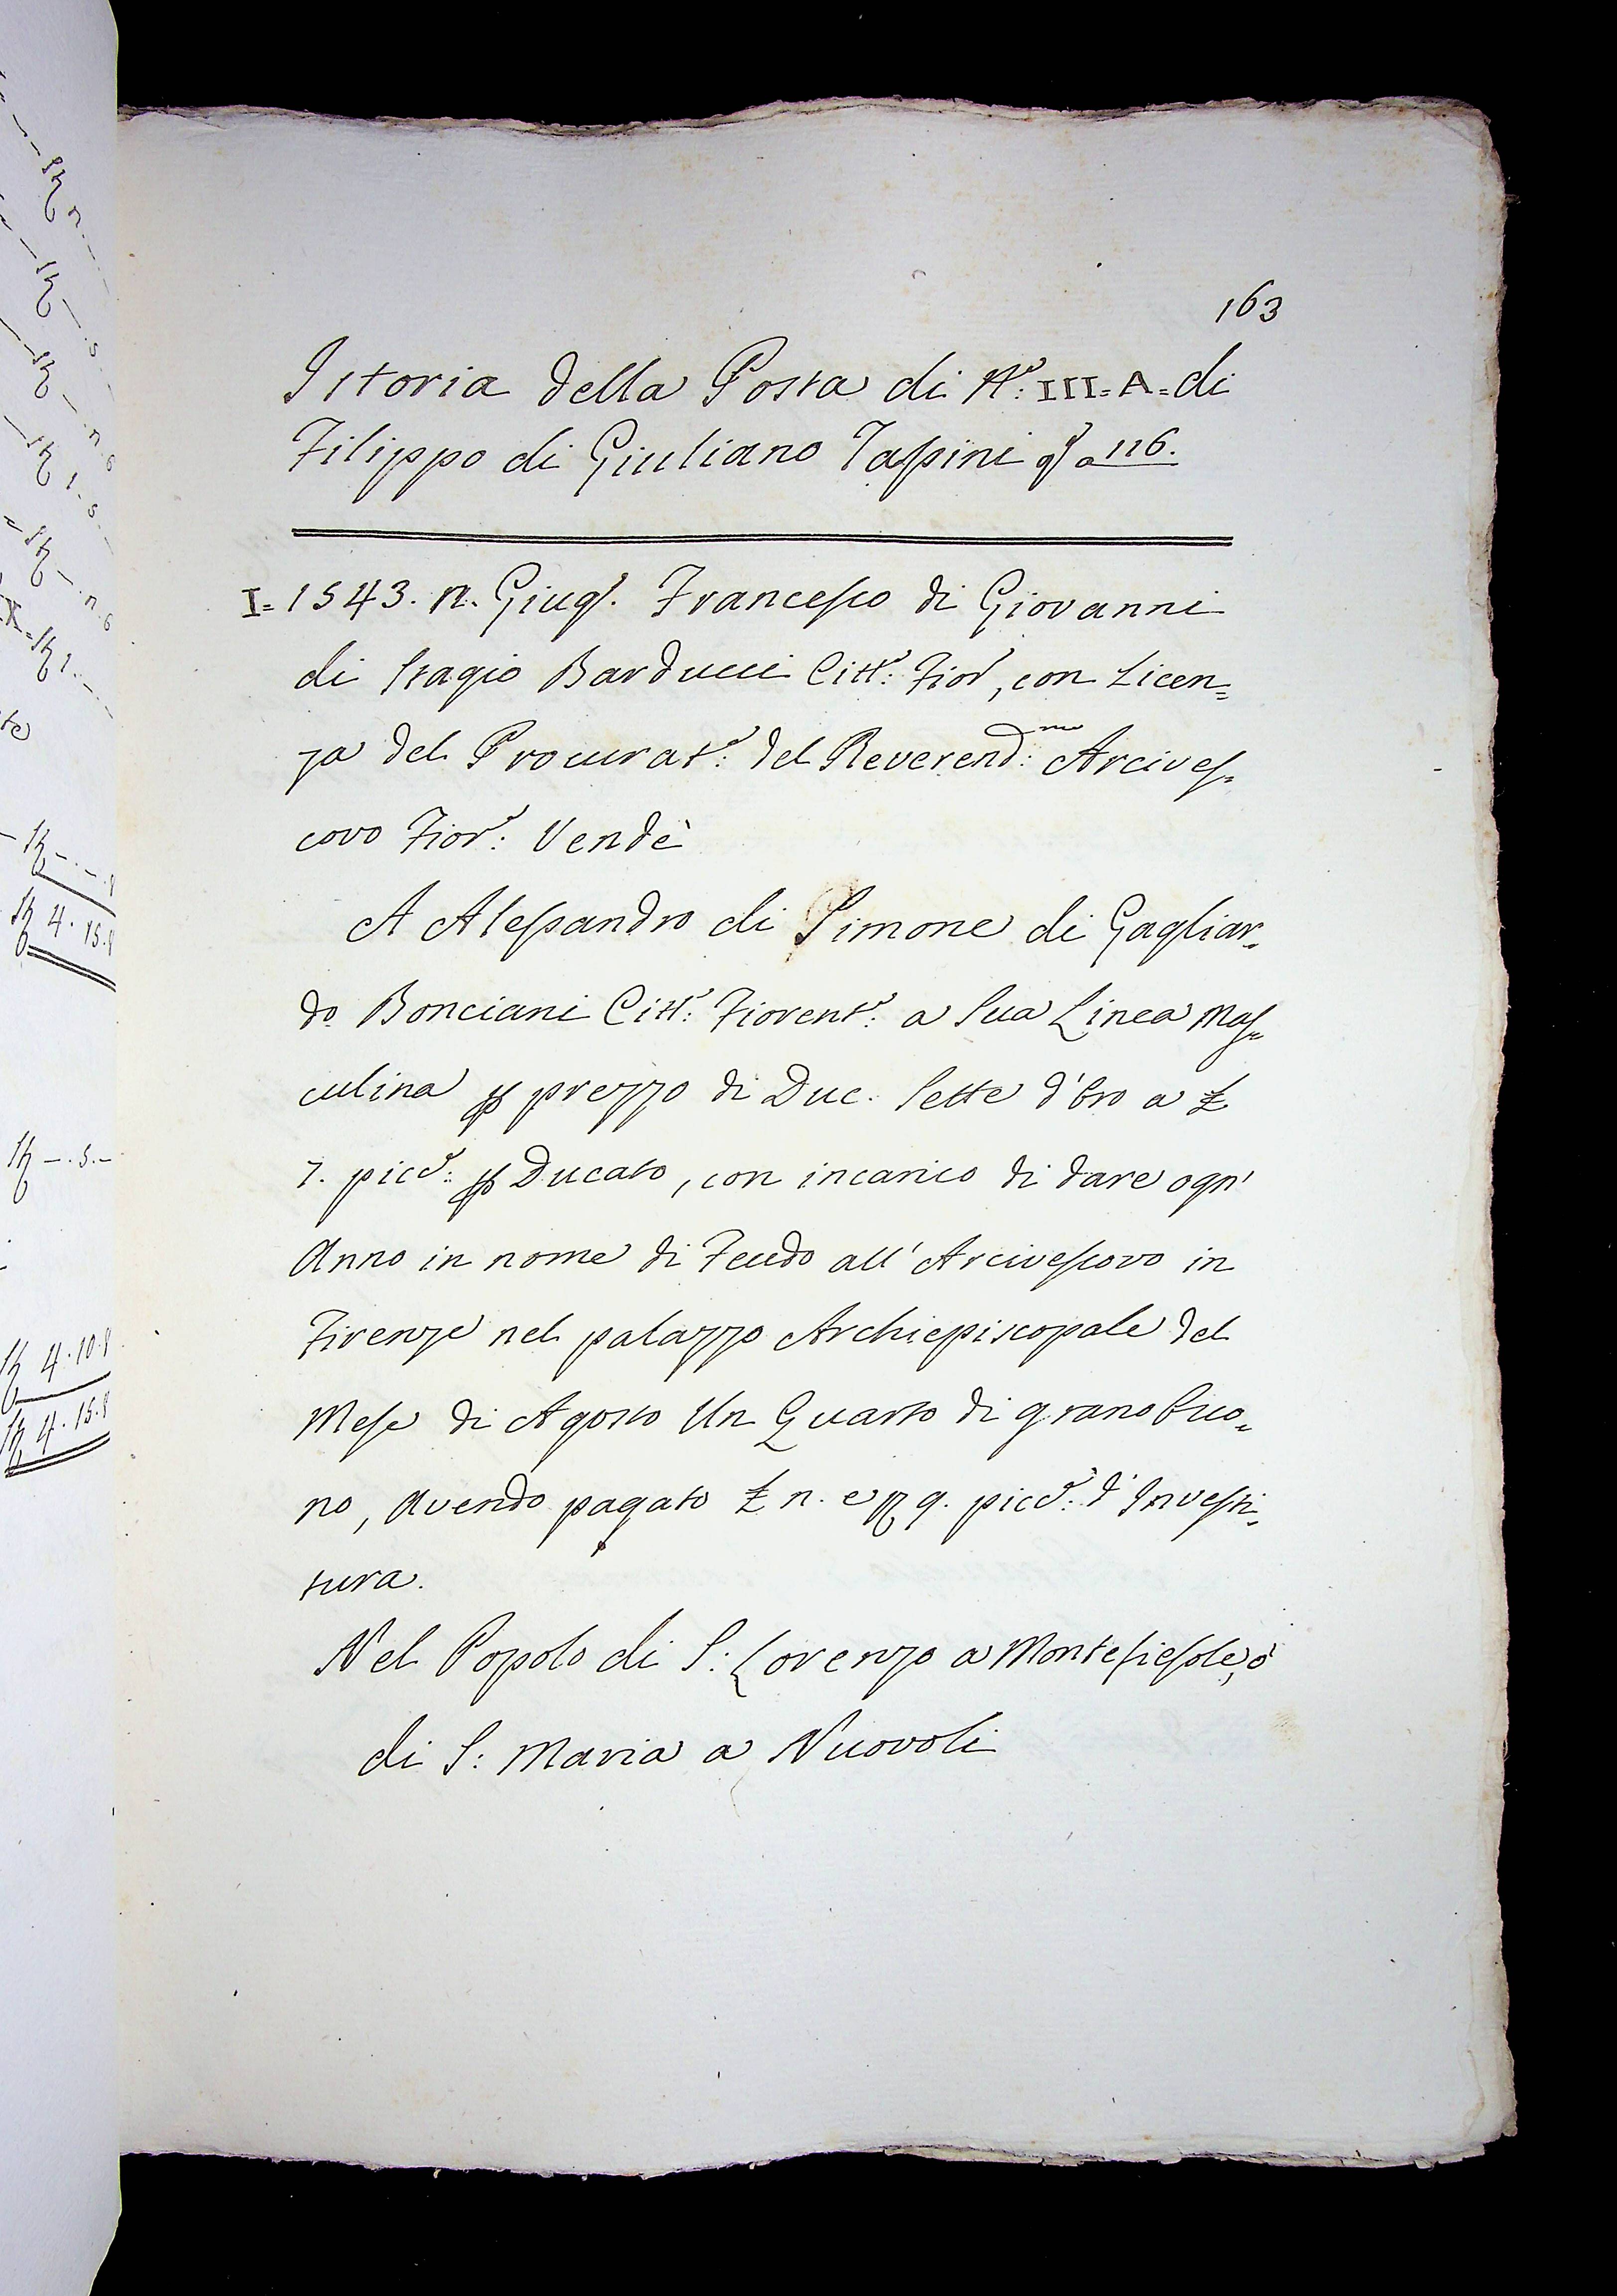 163
Istoria della Posta di N.o III=A=di
Filippo di Giuliano Tassini a 116.
I=1543. n. Giug. Francesco di Giovanni
di Stagio Barducci Citt.o: Fior.o, con Licen=
za del Procurat.e: del Reverend.mo: Arcives=
covo Fior.o: Vendè
A Alessandro di Simone di Gagliar=
do Bonciani Citt.o: Fiorent.o: a Sua Linea Mas=
culina p prezzo di Duc. Sette d'Oro a £
7. picc.i: p Ducato, con incarico di dare ogn'
Anno in nome di Feudo all'Arcivescovo in
Firenze nel palazzo Archiepiscopale del
Mese di Agosto Un Quarto di grano buo=
no, avendo pagato £ n. e 9. picc.i: d'Investi=
tura.
Nel Popolo di S: Lorenzo a Montefiesole, ò
di S: Maria a Nuovoli
4.15.8
-.5.-
4.10.8
4.15.8